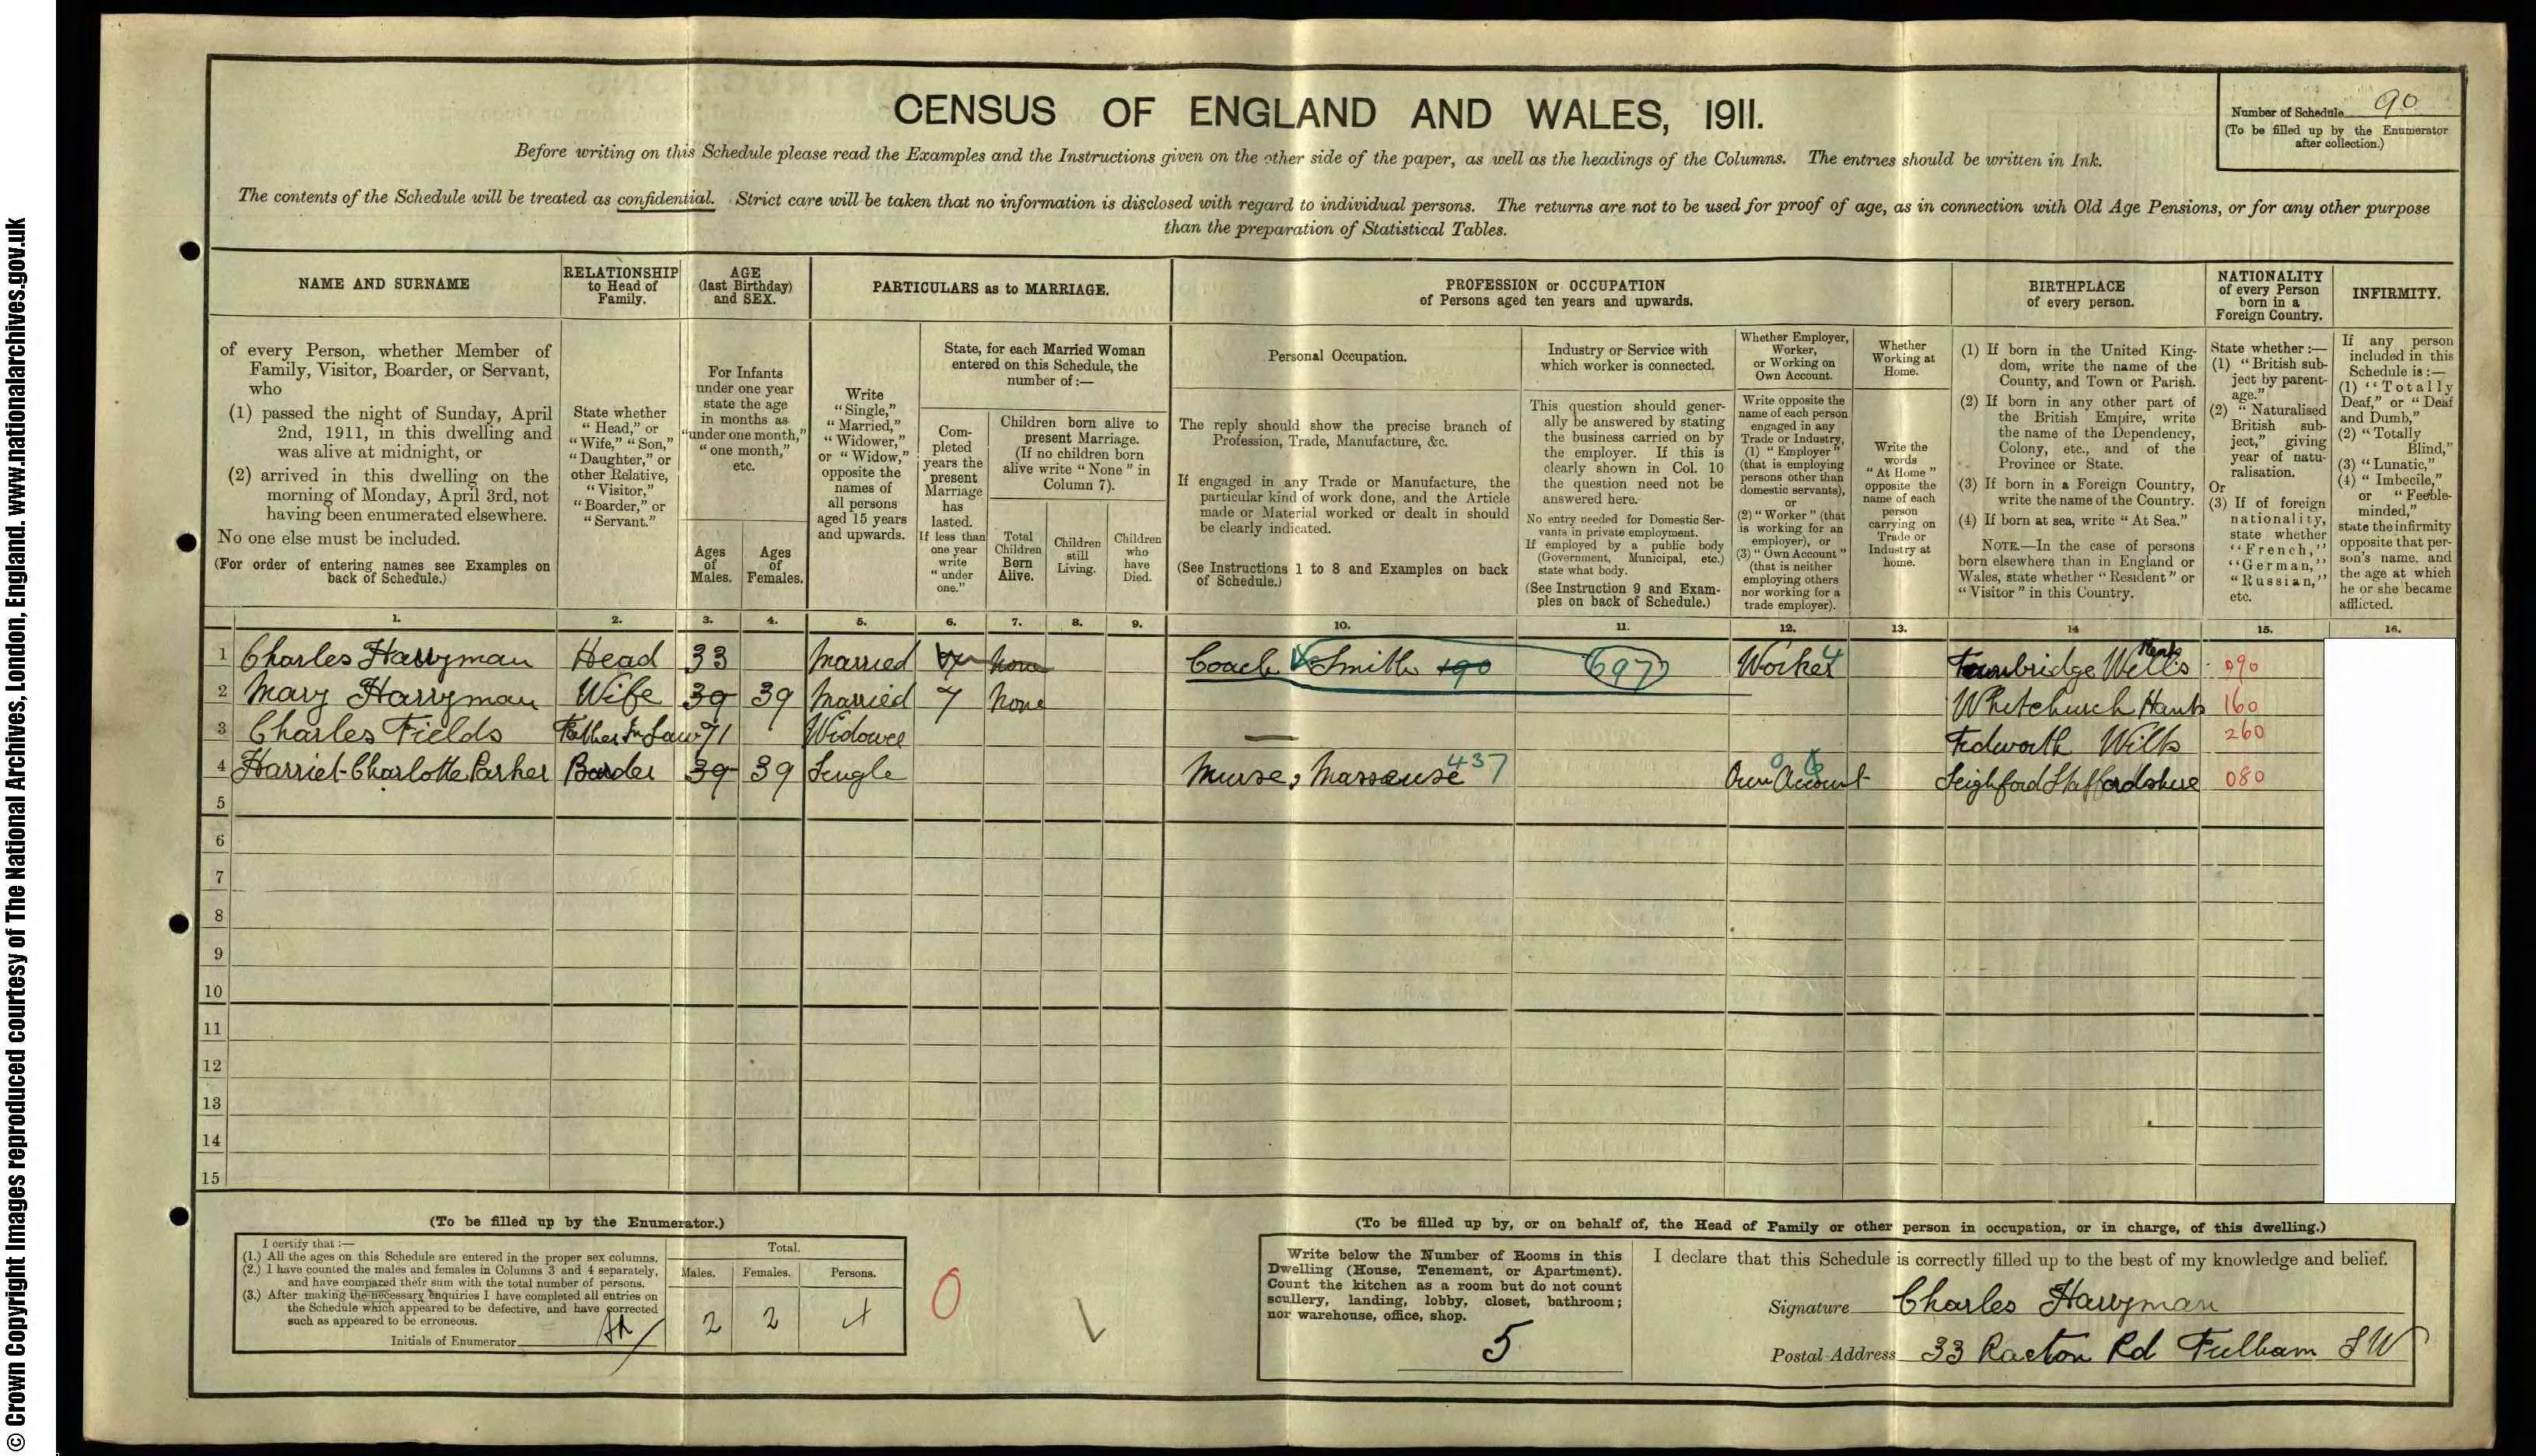 © Crown Copyright Images reproduced courtesy of The National Archives, London, England. www.nationalarchives.gov.uk
CENSUS OF ENGLAND AND WALES, 1911.
Number of Schedule 90
(To be filled up by the Enumerator
after collection.)
Before writing on this Schedule please read the Examples and the Instructions given on the other side of the paper, as well as the headings of the Columns. The entries should be written in Ink.
The contents of the Schedule will be treated as confidential. Strict care will be taken that no information is disclosed with regard to individual persons. The returns are not to be used for proof of age, as in connection with Old Age Pensions, or for any other purpose
than the preparation of Statistical Tables.
NAME AND SURNAME
of every Person, whether Member of
Family, Visitor, Boarder, or Servant,
who
(1) passed the night of Sunday, April
2nd, 1911, in this dwelling and
was alive at midnight, or
(2) arrived in this dwelling on the
morning of Monday, April 3rd, not
having been enumerated elsewhere.
No one else must be included.
(For order of entering names see Examples on
back of Schedule.)
1.
RELATIONSHIP
to Head of
Family.
State whether
"Head," or
"Wife," "Son,"
"Daughter," or
other Relative,
"Visitor,"
"Boarder," or
"Servant."
2.
AGE
(last Birthday)
and SEX.
For Infants
under one year
state the age
in months as
"under one month,"
"one month,"
etc.
Ages
of
Males.
3.
Ages
of
Females.
4.
PARTICULARS as to MARRIAGE.
Write
"Single,"
"Married,"
"Widower,"
or "Widow,"
opposite the
names of
all persons
aged 15 years
and upwards.
5.
State, for each Married Woman
entered on this Schedule, the
number of:—
Com-
pleted
years the
present
Marriage
has
lasted.
If less than
one year
write
"under
one."
6.
Children born alive to
present Marriage.
(If no children born
alive write "None" in
Column 7).
Total
Children
Born
Alive.
7.
Children
still
Living.
8.
Children
who
have
Died.
9.
PROFESSION or OCCUPATION
of Persons aged ten years and upwards.
Personal Occupation.
The reply should show the precise branch of
Profession, Trade, Manufacture, &c.
If engaged in any Trade or Manufacture, the
particular kind of work done, and the Article
made or Material worked or dealt in should
be clearly indicated.
(See Instructions 1 to 8 and Examples on back
of Schedule.)
10.
Industry or Service with
which worker is connected.
This question should gener-
ally be answered by stating
the business carried on by
the employer. If this is
clearly shown in Col. 10
the question need not be
answered here.
No entry needed for Domestic Ser-
vants in private employment.
If employed by a public body
(Government, Municipal, etc.)
state what body.
(See Instruction 9 and Exam-
ples on back of Schedule.)
11.
Whether Employer,
Worker,
or Working on
Own Account.
Write opposite the
name of each person
engaged in any
Trade or Industry,
(1) "Employer"
(that is employing
persons other than
domestic servants),
or
(2) "Worker" (that
is working for an
employer), or
(3) "Own Account"
(that is neither
employing others
nor working for a
trade employer).
12.
Whether
Working at
Home.
Write the
words
"At Home"
opposite the
name of each
person
carrying on
Trade or
Industry at
home.
13.
BIRTHPLACE
of every person.
(1) If born in the United King-
dom, write the name of the
County, and Town or Parish.
(2) If born in any other part of
the British Empire, write
the name of the Dependency,
Colony, etc., and of the
Province or State.
(3) If born in a Foreign Country,
write the name of the Country.
(4) If born at sea, write "At Sea."
NOTE.—In the case of persons
born elsewhere than in England or
Wales, state whether "Resident" or
"Visitor" in this Country.
14
NATIONALITY
of every Person
born in a
Foreign Country.
State whether:—
(1) "British sub-
ject by parent-
age."
(2) "Naturalised
British sub-
ject," giving
year of natu-
ralisation.
Or
(3) If of foreign
nationality,
state whether
"French,"
"German,"
"Russian,"
etc.
15.
INFIRMITY.
If any person
included in this
Schedule is:—
(1) "Totally
Deaf," or "Deaf
and Dumb,"
(2) "Totally
Blind,"
(3) "Lunatic,"
(4) "Imbecile,"
or "Feeble-
minded,"
state the infirmity
opposite that per-
son's name, and
the age at which
he or she became
afflicted.
16.
1 Charles Harryman Head 33 Married None Coach Smith 190 697 Worker 4 Tunbridge Wells Kent 090
2 Mary Harryman Wife 39 39 Married 7 None Whitchurch Hants 160
3 Charles Fields Father In Law 71 Widower — Tedworth Wilts 260
4 Harriet Charlotte Parker Boarder 39 39 Single Nurse, Masseuse 437 Own Account Seighford Staffordshire 080
5
6
7
8
9
10
11
12
13
14
15
(To be filled up by the Enumerator.)
I certify that:—
(1.) All the ages on this Schedule are entered in the proper sex columns.
(2.) I have counted the males and females in Columns 3 and 4 separately,
and have compared their sum with the total number of persons.
(3.) After making the necessary enquiries I have completed all entries on
the Schedule which appeared to be defective, and have corrected
such as appeared to be erroneous.
Initials of Enumerator
Total.
Males. Females. Persons.
2 2 4
0
(To be filled up by, or on behalf of, the Head of Family or other person in occupation, or in charge, of this dwelling.)
Write below the Number of Rooms in this
Dwelling (House, Tenement, or Apartment).
Count the kitchen as a room but do not count
scullery, landing, lobby, closet, bathroom;
nor warehouse, office, shop.
5
I declare that this Schedule is correctly filled up to the best of my knowledge and belief.
Signature Charles Harryman
Postal Address 33 Racton Rd Fulham S W